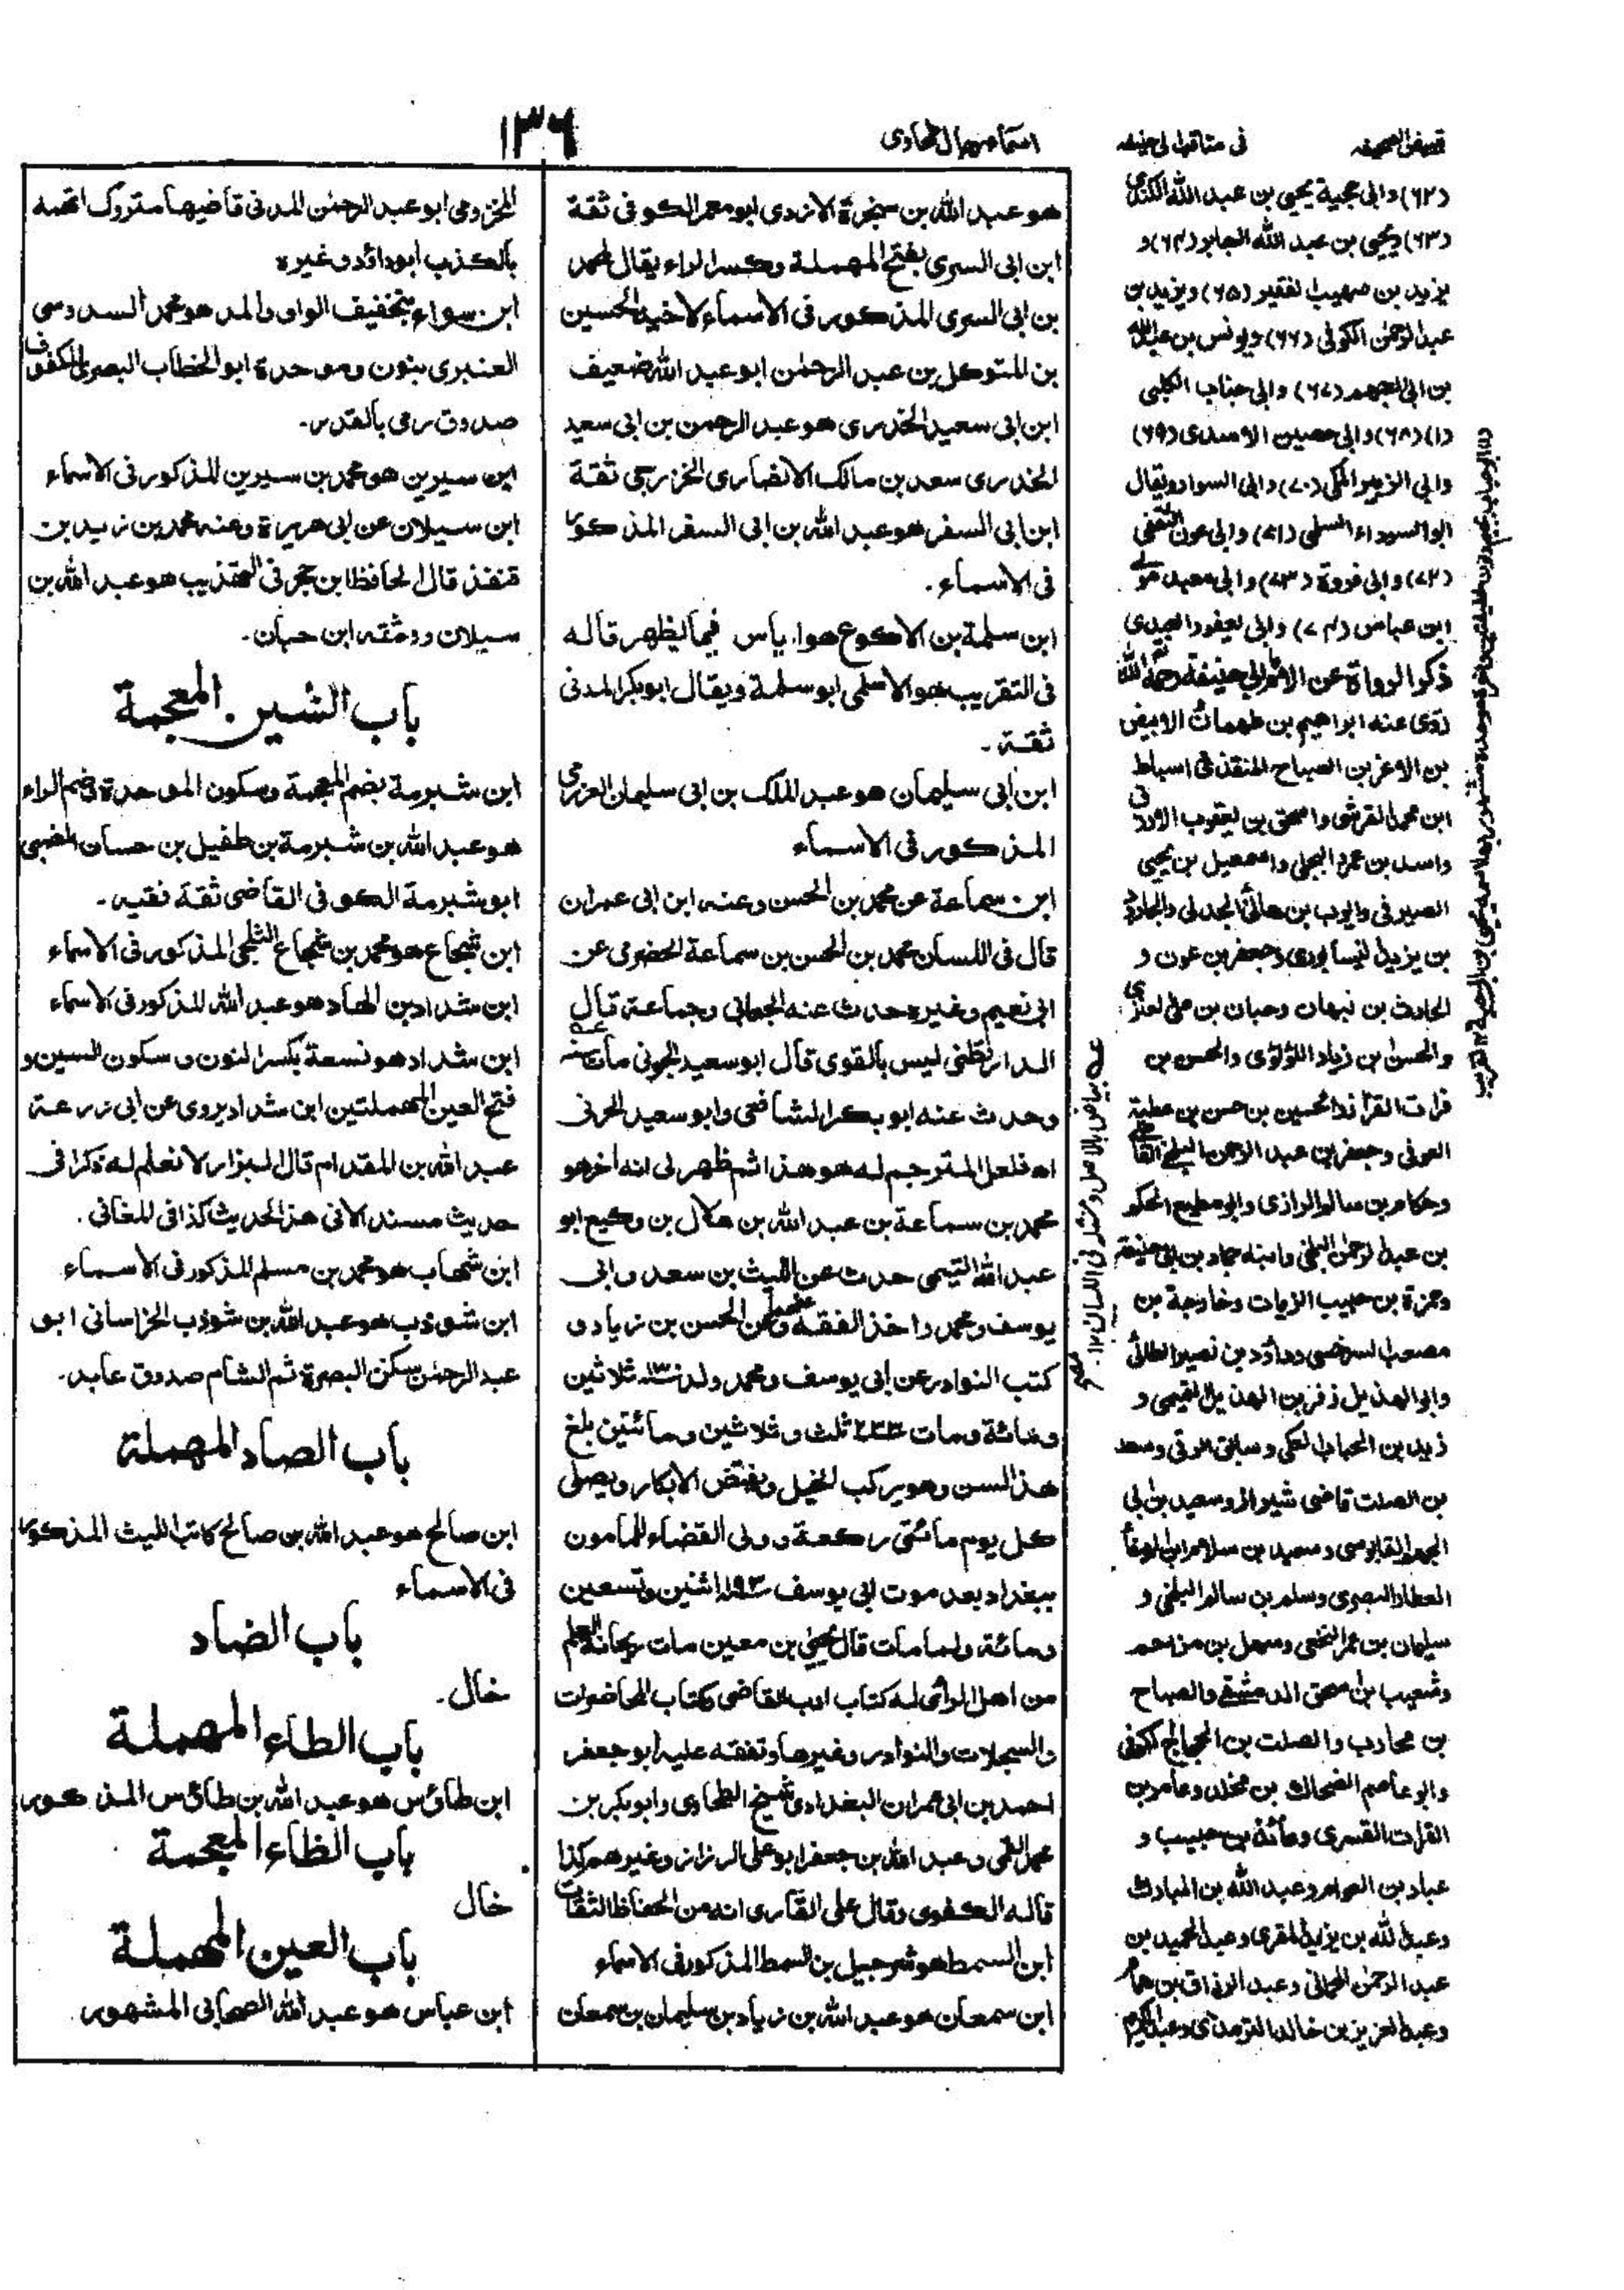 تبييض الصحيفه
فى مناقب ابى حنيفه
اسماء رجال الطحاوى
١٣٦
هو عبد الله بن سخبرة الازدى ابو معمر الكوفى ثقة
ابن ابى السرى بفتح المهملة وكسر الراء يقال لمحمد
بن ابى السرى المذكور فى الاسماء لاخيه الحسين
بن المتوكل بن عبد الرحمٰن ابو عبد الله ضعيف
ابن ابى سعيد الخدرى هو عبد الرحمن بن ابى سعيد
الخدرى سعد بن مالك الانصارى الخزرجى ثقة
ابن ابى السفر هو عبد الله بن ابى السفر المذكور
فى الاسماء.
ابن سلمة بن الاكوع هو اياس فيما يظهر قاله
فى التقريب هو الاسلمى ابو سلمة ويقال ابو بكر المدنى
ثقة۔
ابن ابى سليمان هو عبد الملك بن ابى سليمان العزرمى
المذكور فى الاسماء
ابن سماعة عن محمد بن الحسن وعنه ابن ابى عمران
قال فى اللسان محمد بن الحسن بن سماعة الحضرمى عن
ابى نعيم وغيره حدث عنه الجعابى وجماعة قال
الدارقطنى ليس بالقوى قال ابو سعيد الجونى مات سنة
وحدث عنه ابو بكر الشافعى وابو سعيد الحرفى
اه فلعل المترجم له هو هذا ثم ظهر لى انه اخر هو
محمد بن سماعة بن عبد الله بن هلال بن وكيع ابو
عبد الله التيمى حدث عن الليث بن سعد وابى
يوسف ومحمد واخذ الفقه عنهما وعن الحسن بن زياد و
كتب النوادر عن ابى يوسف ومحمد ولد سنة ١٣٠ ثلاثين
ومائة ومات ٢٣٣ ثلث وثلاثين ومائتين بلغ
هذا السن وهو يركب الخيل ويفتض الابكار ويصلى
كل يوم مائتى ركعة وولى القضاء للمامون
ببغداد بعد موت ابى يوسف ١٩٢ اثنين وتسعين
ومائة ولما مات قال يحيى بن معين مات ريحانة العلم
من اهل الرائى له كتاب ادب القاضى وكتاب المحاضرات
والسجلات والنوادر وغيرها وتفقه عليه ابو جعفر
احمد بن ابى عمران البغدادى شيخ الطحاوى وابو بكر بن
محمد القمى وعبد الله بن جعفر ابو على الرزاز وغيرهم كذا
قاله الكفوى وقال على القارى انه من الحفاظ الثقات
ابن السمط هو شرحبيل بن السمط المذكور فى الاسماء
ابن سمعان هو عبد الله بن زياد بن سليمان بن سمعان
المخزومى ابو عبد الرحمٰن المدنى قاضيها متروك اتهمه
بالكذب ابو داؤد وغيره
ابن سواء بتخفيف الواو والمد هو محمد السدوسى
العنبرى بنون وموحدة ابو الخطاب البصرى المكفوف
صدوق رمى بالقدر۔
ابن سيرين هو محمد بن سيرين المذكور فى الاسماء
ابن سيلان عن ابى هريرة وعنه محمد بن زيد بن
قنفذ قال الحافظ ابن حجر فى التهذيب هو عبد الله بن
سيلان ووثقه ابن حبان۔
باب الشين المعجمة
ابن شبرمة بضم المعجمة وسكون الموحدة وضم الراء
هو عبد الله بن شبرمة بن طفيل بن حسان الضبى
ابو شبرمة الكوفى القاضى ثقة فقيه۔
ابن شجاع هو محمد بن شجاع الثلجى المذكور فى الاسماء
ابن شداد بن الهاد هو عبد الله المذكور فى الاسماء
ابن شداد هو نسعة بكسر النون وسكون السين و
فتح العين المهملتين ابن شداد يروى عن ابى زرعة
عبد الله بن المقدام قال البزار لا نعلم له ذكرا فى
حديث مسند الا فى هذا الحديث كذا فى المغانى.
ابن شهاب هو محمد بن مسلم المذكور فى الاسماء
ابن شوذب هو عبد الله بن شوذب الخراسانى ابو
عبد الرحمٰن سكن البصرة ثم الشام صدوق عابد۔
باب الصاد المهملة
ابن صالح هو عبد الله بن صالح كاتب الليث المذكور
فى الاسماء
باب الضاد
خال۔
باب الطاء المهملة
ابن طاؤس هو عبد الله بن طاؤس المذكور
باب الظاء المعجمة
خال
باب العين المهملة
ابن عباس هو عبد الله الصحابى المشهور
(٦٢) وابى حجية يحيى بن عبد الله الكندى
(٦٣) ويحيى بن عبد الله الجابر (٦٤) و
يزيد بن صهيب الفقير (٦٥) ويزيد بن
عبد الرحمٰن الكوفى (٦٦) ويونس بن عبد الله
بن ابى الجهم (٦٧) وابى جناب الكلبى
(١) (٦٨) وابى حصين الاسدى (٦٩)
وابى الزبير المكى (٧٠) وابى السوار ويقال
ابو السوداء السلمى (٧١) وابى عون الثقفى
(٧٢) وابى فروة (٧٣) وابى معبد مولى
ابن عباس (٧٤) وابى يعفور العبدى
ذكر الرواة عن الامام ابى حنيفة رحمه الله
روى عنه ابراهيم بن طهمان والابيض
بن الاغر بن الصباح المنقرى واسباط
ابن محمد القرشى واسحق بن يوسف الازرق
واسد بن عمرو البجلى واسمعيل بن يحيى
الصيرفى وايوب بن هانئ الجعفى والجارود
بن يزيد النيسابورى وجعفر بن عون و
الحارث بن نبهان وحبان بن على العنزى
والحسن بن زياد اللؤلؤى والحسن بن
فرات القزاز والحسين بن حسن بن عطية
العوفى وحفص بن عبد الرحمن البلخى القاضى
وحكام بن سالم الرازى وابو مطيع الحكم
بن عبد الرحمٰن البلخى وابنه حماد بن ابى حنيفة
وحمزة بن حبيب الزيات وخارجة بن
مصعب السرخسى وداؤد بن نصير الطائى
وابو الهذيل زفر بن الهذيل التميمى و
زيد بن الحباب العكلى وسابق الرقى وسعد
بن الصلت قاضى شيراز وسعيد بن ابى
الجهم القابوسى وسعيد بن سلام بن ابى الهيفاء
العطار البصرى وسلم بن سالم البلخى و
سليمان بن عمرو النخعى وسهل بن مزاحم
وشعيب بن اسحق الدمشقى والصباح
بن محارب والصلت بن الحجاج الكوفى
وابو عاصم الضحاك بن مخلد وعامر بن
الفرات القسرى وعائذ بن حبيب و
عباد بن العوام وعبد الله بن المبارك
وعبد الله بن يزيد المقرى وعبد الحميد بن
عبد الرحمٰن الحمانى وعبد الرزاق بن همام
وعبد العزيز بن خالد الترمذى وعبد الكريم
عـه بياض بالاصل ومثله فى اللسان ١٢.